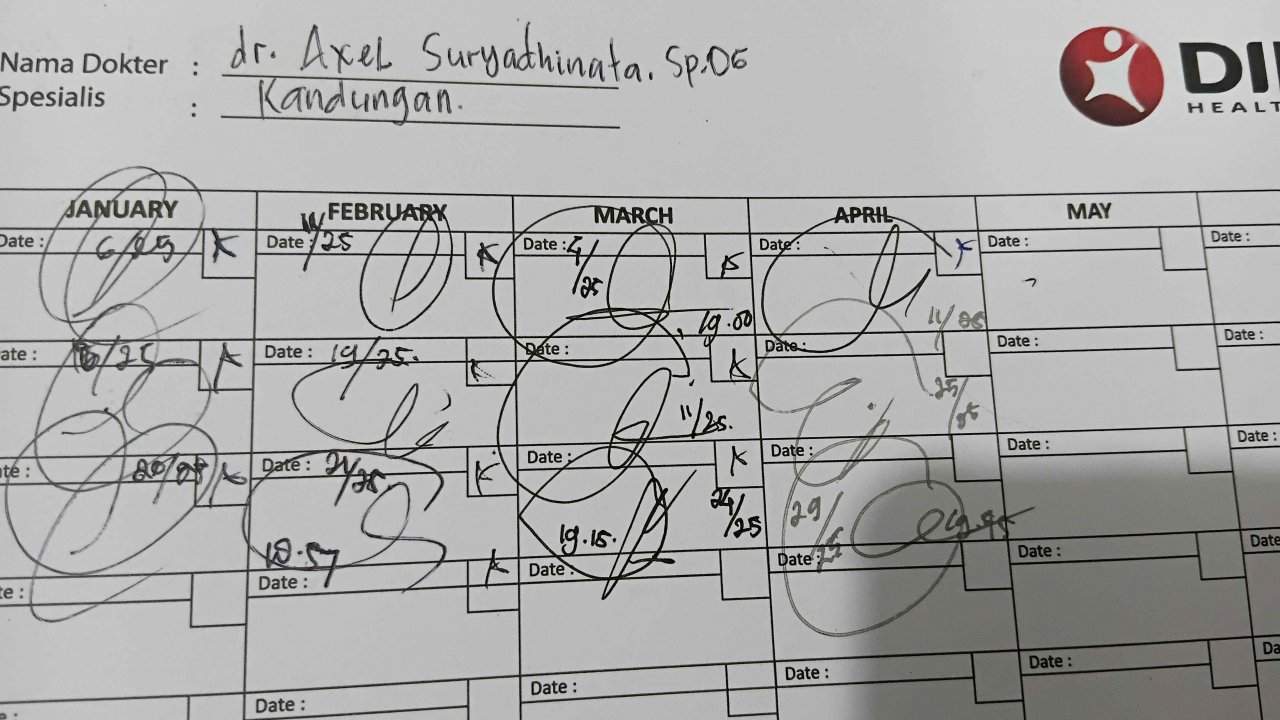 Nama Dokter : dr. Axel Suryadhinata. Sp.OG
Spesialis : Kandungan.
DI
HEALT
JANUARY FEBRUARY MARCH APRIL MAY
Date : 6/25 K Date : 11/25 K Date : 4/25 K Date : K Date : Date :
19.00 11/25
ate : /25 K Date : 19/25. K Date : K Date : Date : Date :
11/25. 25/25
te : 20/25 K Date : 21/25. K Date : K Date : Date : Date :
18.57 19.15. 24/25 29/25 19.45
te : Date : K Date : Date : Date : Date
Date : Date : Date : Date : Da